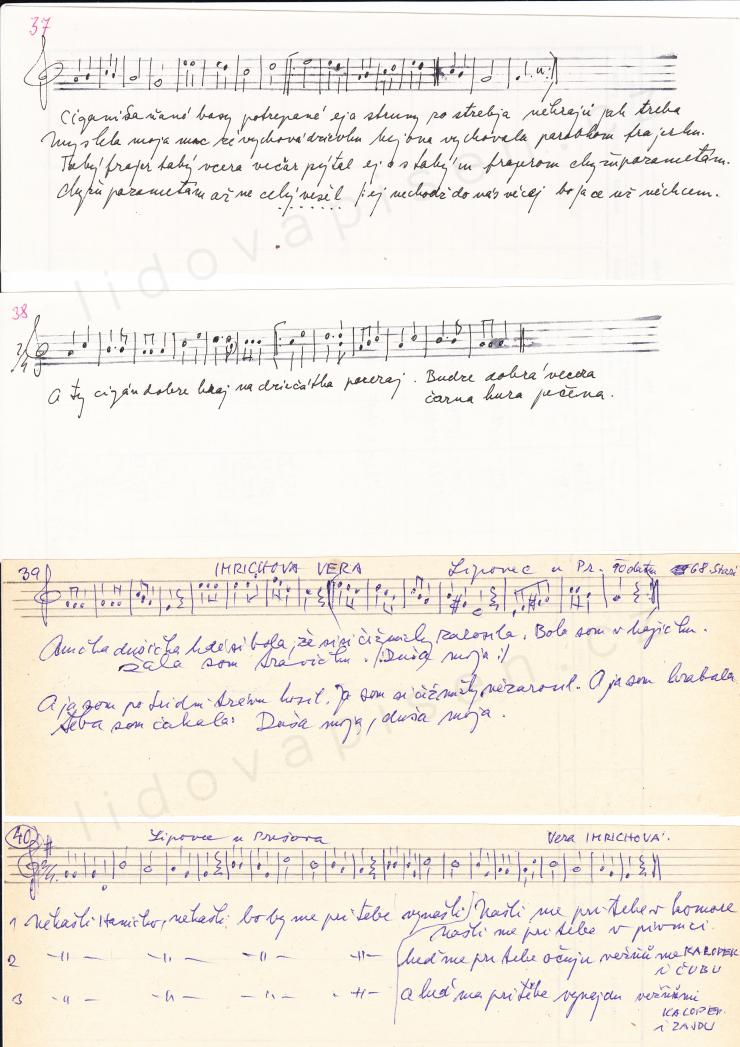 37
Cigani šaňané basy potrepané eja struny po strebja nehrajú jak treba
myslela moja mac že vychová dzivku hej ona vychovala parobkom frajerku.
Taký frajer taký včera večar pýtal ej o s takým frajerom chyžu pozametám.
chyžu pozametám až ne celý vešel /:ej nechodź do nás věcej bo ja ce už něchcem.
38
2/4
A ty cigán dobre hraj na dzievčátka pozeraj. Budze dobrá večera
čarna kura pečena.
39 IMRICHOVA VERA Lipovec u Pr. 68 Stará
Anička dušička kde si bola, že si si čižmičky zarosila. Bola som v hájičku.
žala som trávičku. /:Duša moja:/
A ja som po tri dni trávu kosil. Ja som si čižmičky nezarosil. A ja som hrabala
teba som čakala: Duša moja, duša moja.
40 Lipovec u Prešova Vera IMRICHOVÁ.
1 nekašli Haničko, nekašli bo by me pri tebe vynašli Našli me pri tebe v komore
našli me pri tebe v pivnici.
2 -"- -"- -"- -"- keď me pri tebe očuju vežňú me KALOPEK
i ČUBU
3 -"- -"- -"- -"- a keď ma pri tebe vynajdu vežňú mi
KALOPEK
i ZAJDU
lidovapisen.cz
lidovapisen.cz